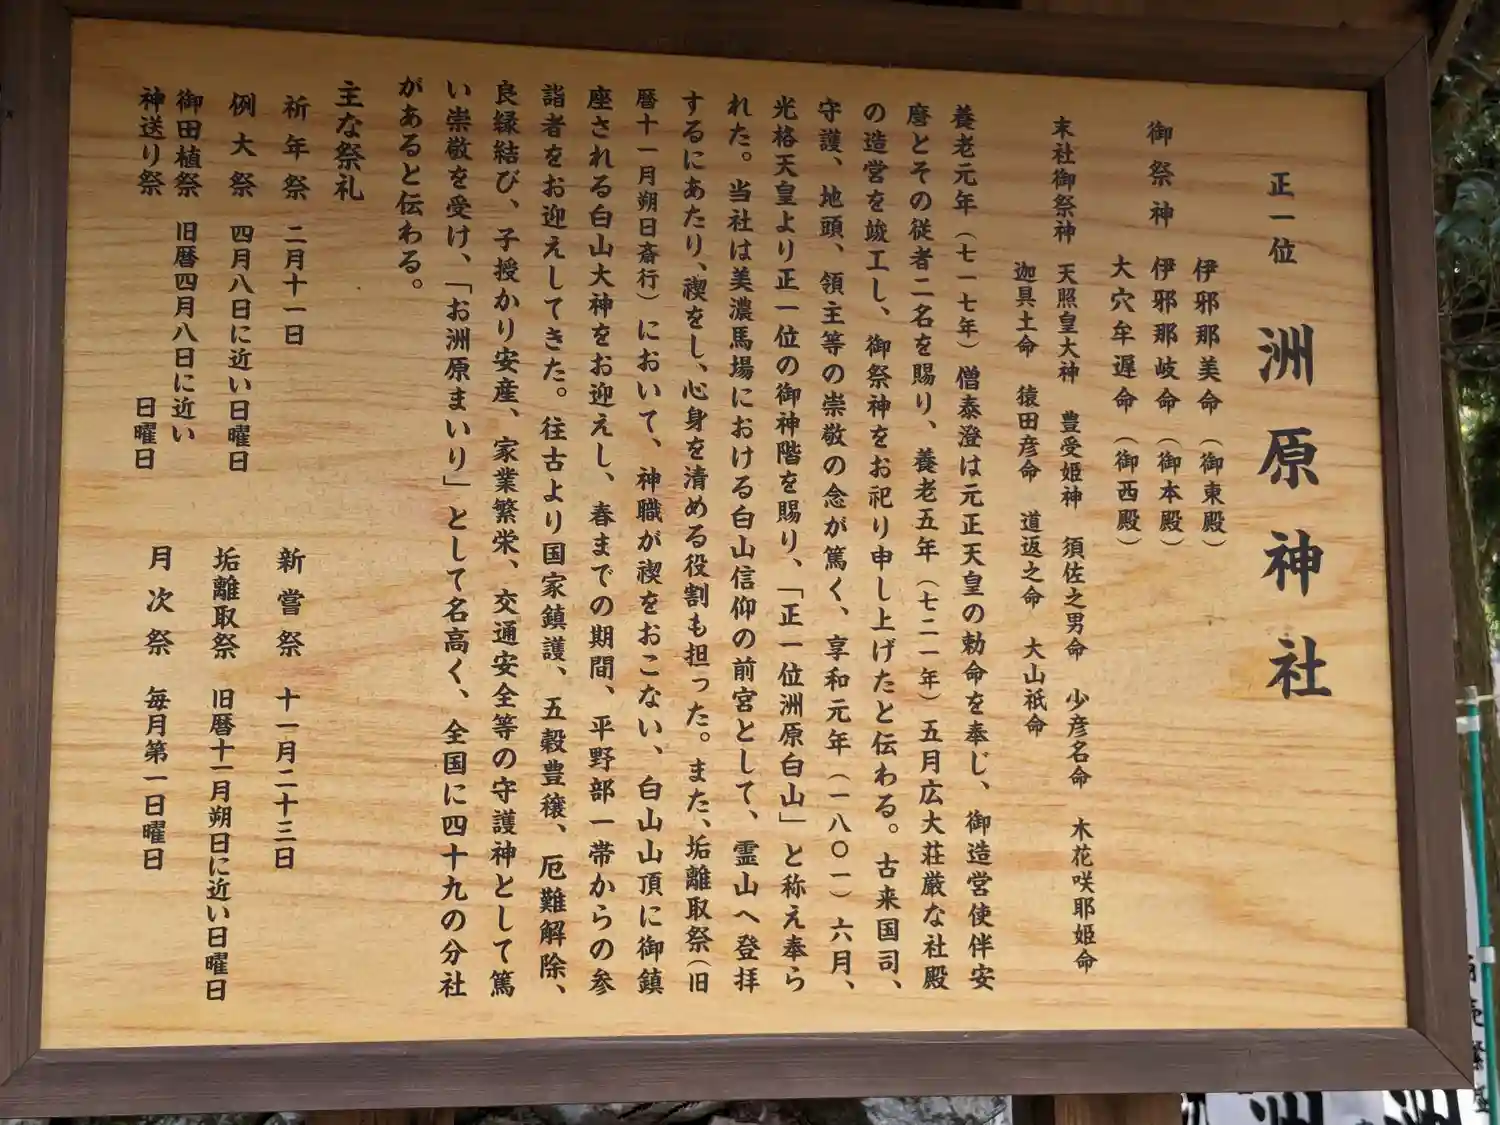 正一位 洲原神社
御祭神 伊邪那美命(御東殿)
伊邪那岐命(御本殿)
大穴牟遅命(御西殿)
末社御祭神 天照皇大神 豊受姫神 須佐之男命 少彦名命 木花咲耶姫命
迦具土命 猿田彦命 道返之命 大山祇命
養老元年(七一七年)僧泰澄は元正天皇の勅命を奉じ、御造営使伴安
麿とその従者二名を賜り、養老五年(七二一年)五月広大荘厳な社殿
の造営を竣工し、御祭神をお祀り申し上げたと伝わる。古来国司、
守護、地頭、領主等の崇敬の念が篤く、享和元年(一八〇一)六月、
光格天皇より正一位の御神階を賜り、「正一位洲原白山」と称え奉ら
れた。当社は美濃馬場における白山信仰の前宮として、霊山へ登拝
するにあたり、禊をし、心身を清める役割も担った。また、垢離取祭(旧
暦十一月朔日斎行)において、神職が禊をおこない、白山山頂に御鎮
座される白山大神をお迎えし、春までの期間、平野部一帯からの参
詣者をお迎えしてきた。往古より国家鎮護、五穀豊穣、厄難解除、
良縁結び、子授かり安産、家業繁栄、交通安全等の守護神として篤
い崇敬を受け、「お洲原まいり」として名高く、全国に四十九の分社
があると伝わる。
主な祭礼
祈年祭 二月十一日 新嘗祭 十一月二十三日
例大祭 四月八日に近い日曜日 垢離取祭 旧暦十一月朔日に近い日曜日
御田植祭 旧暦四月八日に近い
神送り祭 日曜日 月次祭 毎月第一日曜日